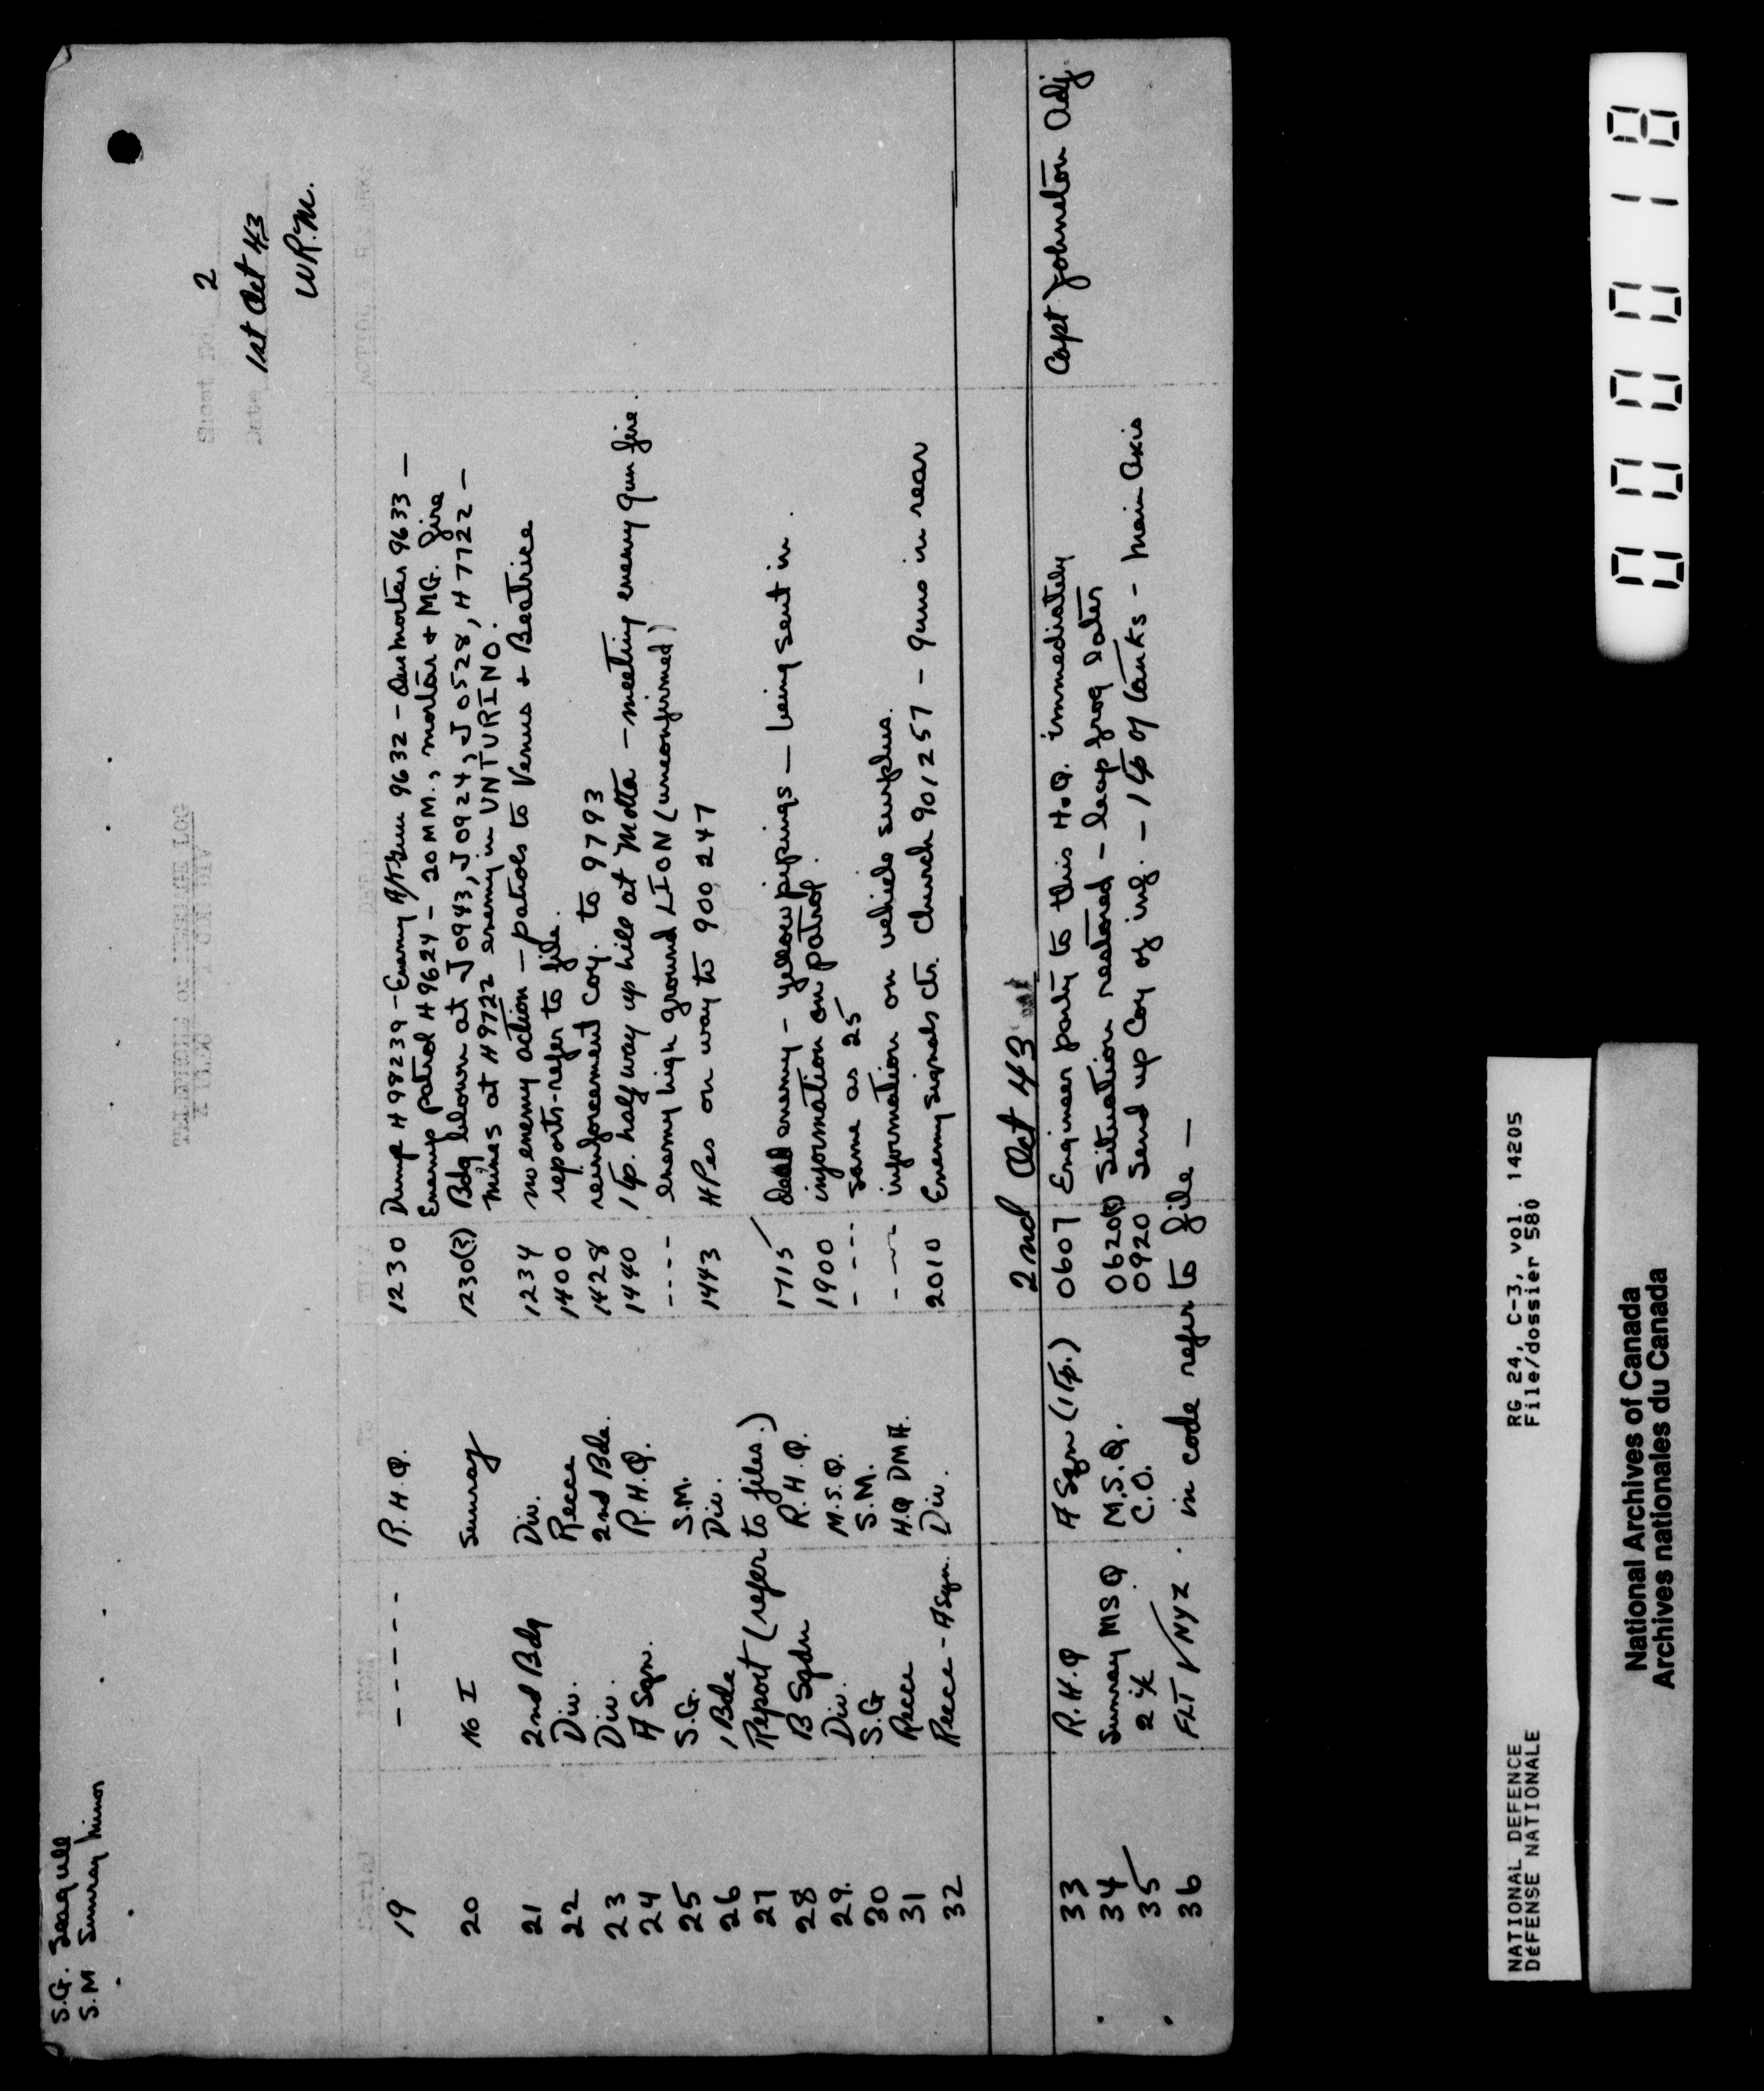 S.G. Seagull
S.M Sunray Minor
2
1st Oct 43
W.R.M.
19 ----- R.H.Q. 1230 Dump H 998239 - Enemy A/T Gun 9632 - Our mortar 9633 -
Enemy patrol H 9624 - 20 MM., mortar + MG. fire
20 No I Sunray 1230(?) Bdg blown at J0943, J0924, J0528, H7722 -
mines at H9722 enemy in UNTURINO.
21 2nd Bdg Div. 1234 no enemy action - patrols to Venus + Beatrice
22 Div. Recce 1400 reports - refer to file.
23 Div. 2nd Bde. 1428 reinforcement coy. to 9793
24 A Sqn. R.H.Q. 1440 1 tp. half way up hill at Motta - meeting enemy gun fire.
25 S.G. S.M. ---- enemy high ground LION (unconfirmed)
26 1 Bde Div. 1443 HPes on way to 900247
27 Report (refer to files.) 1715 dead enemy - yellow pipings - being sent in.
28 B Sqdn R.H.Q. 1900 information on patrol.
29. Div. M.S.Q. ---- same as 25
30 S.G S.M.
31 Recce H.Q DMH. --- information on vehicle surplus.
32 Recce - A Sqn. Div. 2010 Enemy signals ctr. Church 901257 - guns in rear
2nd Oct 43
33 R.H.Q A Sqn (1 Tp.) 0607 Engineer party to this H.Q. immediately Capt Johnston Adj.
34 Sunray MSQ M.S.Q. 0620(?) Situation restored - leap frog later
35 2 i/c C.O. 0920 Send up Coy of inf. - 1 tp of tanks - main axis
36 FLT V NYZ. in code refer to file -
NATIONAL DEFENCE RG 24, C-3, vol. 14205
DéFENSE NATIONALE File/dossier 580
National Archives of Canada
Archives nationales du Canada
000018